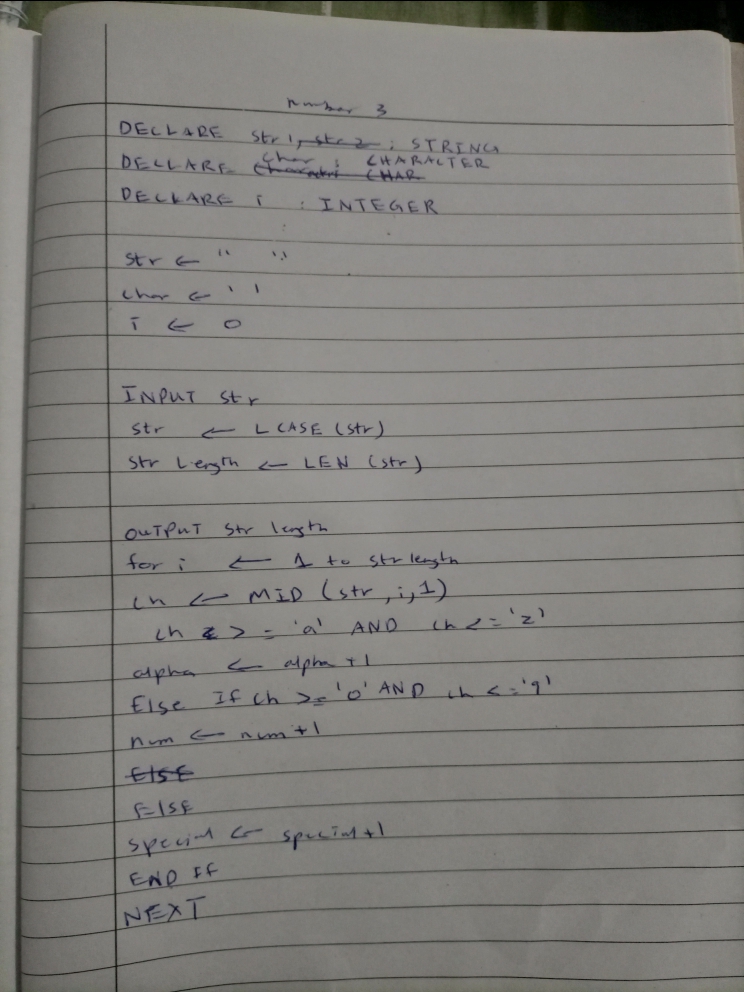 Number 3
DECLARE str1, str2 : STRING
DECLARE char : CHARACTER
DECLARE i : INTEGER
str ← " "
char ← ' '
i ← 0
INPUT str
str ← LCASE (str)
str Length ← LEN (str)
OUTPUT str length
for i ← 1 to str length
ch ← MID (str, i, 1)
ch >= 'a' AND ch <= 'z'
alpha ← alpha +1
Else If ch >= '0' AND ch <= '9'
num ← num +1
ElSE
ElSE
special ← special +1
END If
NEXT